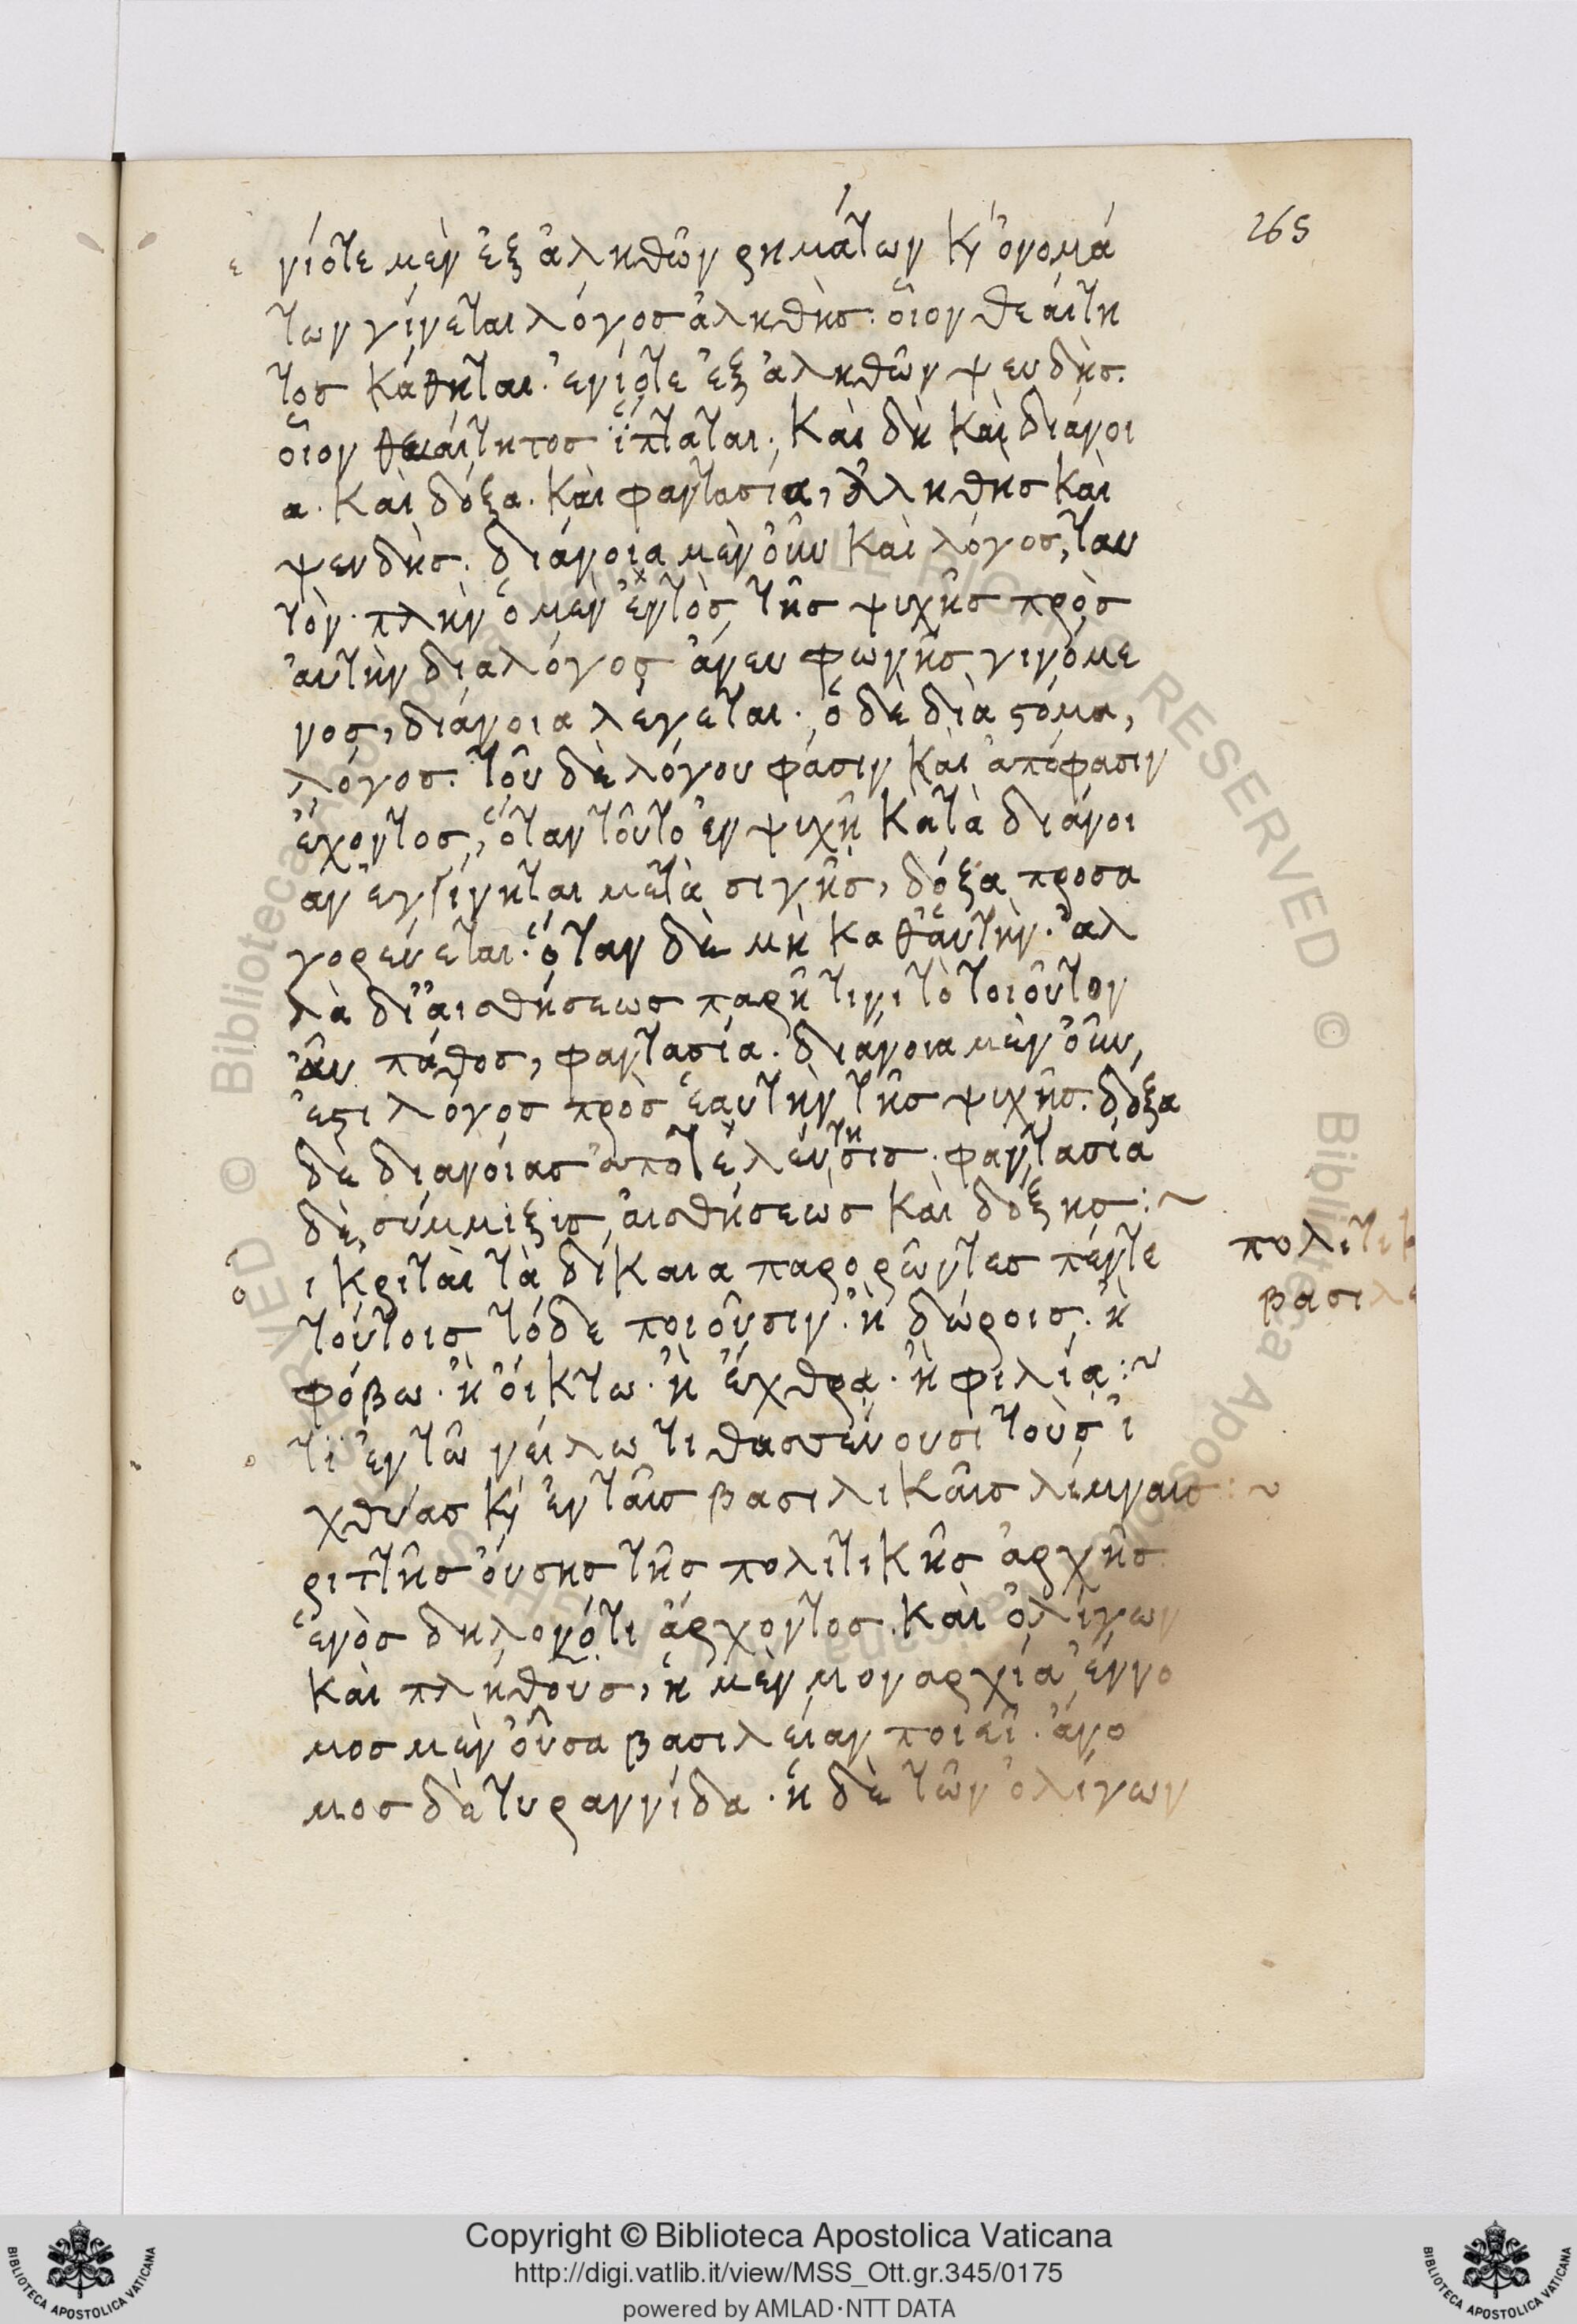 265
ε νίοτε μὲν ἐξ ἀληθῶν ρημάτων κ̀ ὀνομά
των γίνεται λόγος ἀληθὴς: οἷον θεάιτη
τος κάθηται. ἐνίοτε ἐξ ἀληθῶν ψευδὴς.
οἷον θεάιτητος ἵπταται. Καὶ δὴ καὶ διάνοι
α. καὶ δόξα. καὶ φαντασία, ἀληθὴς καὶ
ψευδὴς. διάνοια μὲν οὖν καὶ λόγος, ταυ
τὸν. πλὴν ὁ μὲν ἐντὸς τῆς ψυχῆς πρὸς
ἀυτὴν διαλόγος ἄνευ φωνῆς γινόμε
νος, διάνοια λέγεται. ὁ δὲ διὰ ϛόμα,
λόγος. τοῦ δὲ λόγου φάσιν καὶ ἀπόφασιν
ἔχοντος, ὅταν τοῦτο ἐν ψυχῆ κατὰ διάνοι
αν ἐγγίνηται μετὰ σιγῆς, δόξα προσα
γορεύεται. ὅταν δὲ μὴ καθἁυτὴν. ἀλ
λὰ δἰ ἀισθήσεως παρῆ τινι τὸ τοιοῦτον
ἂυ πάθος, φαντασία. διάνοια μὲν οὖν,
ἐϛι λόγος πρὸς ἑαυτὴν τῆς ψυχῆς. δόξα
δὲ διανόιας ἀποτελέυτησις. φαντασία
δὲ, σύμμιξις ἀισθήσεως καὶ δόξης:~
ὅ ι κριταὶ τὰ δίκαια παρορῶντες πέντε
πολιτικ
τούτοις τόδε ποιοῦσιν. ἢ δώροις. ἢ
βασιλε
φόβω. ἢ ὀίκτω. ἢ ἔχθρα. ἢ φιλία:~
ο τι ἐν τῶ νείλω τιθασσεύουσι τοὺς ἰ
χθύας κ̀ ἐν ταῖς βασιλικαῖς λίμναις:~
ριττῆς ὄυσης τῆς πολιτικῆς ἀρχῆς
ἑνὸς δηλονότι ἄρχοντος. καὶ ὀλίγων
καὶ πλήθους, ἡ μὲν μοναρχία ἔννο
μος μὲν οὖσα βασιλείαν ποιεῖ. ἄνο
μος δὲ τυραννίδα. ἡ δὲ τῶν ὀλίγων
Copyright © Biblioteca Apostolica Vaticana
http://digi.vatlib.it/view/MSS_Ott.gr.345/0175
powered by AMLAD·NTT DATA